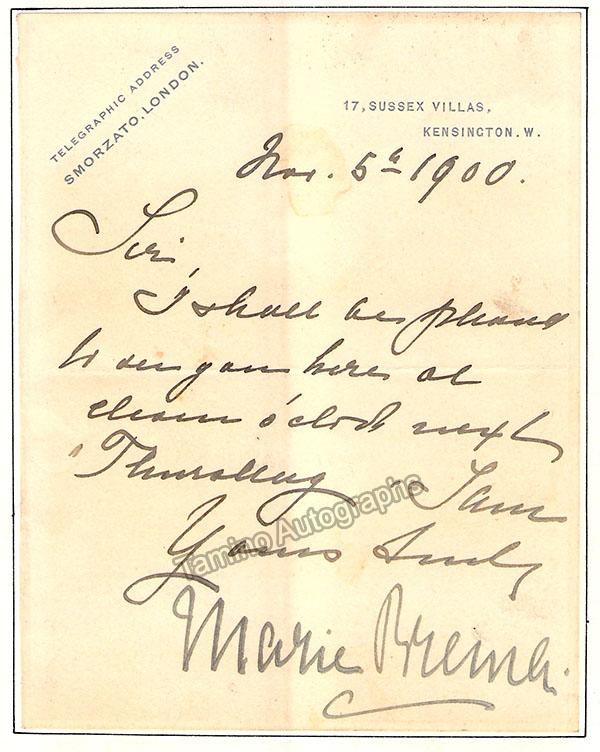 TELEGRAPHIC ADDRESS
SMORZATO. LONDON.
17, SUSSEX VILLAS,
KENSINGTON. W.
Nov. 5th 1900.
Sir,
I shall be pleased
to see you here at
eleven o'clock next
Thursday I am
Yours truly
Marie Brema.
Tamino Autographs